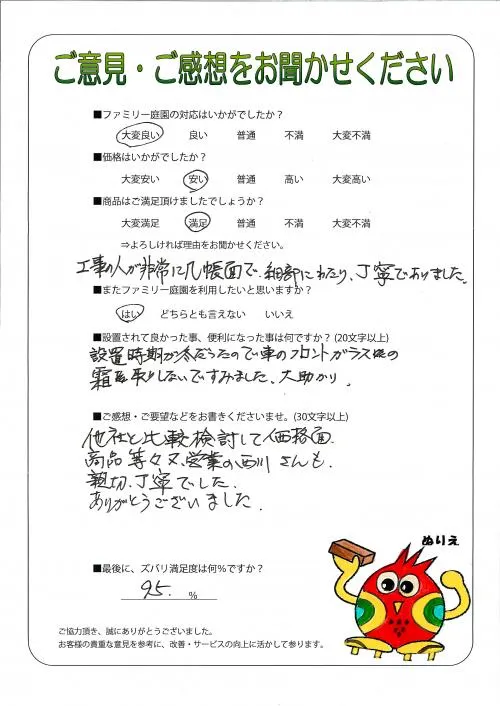 ご意見・ご感想をお聞かせください
■ファミリー庭園の対応はいかがでしたか？
大変良い 良い 普通 不満 大変不満
■価格はいかがでしたか？
大変安い 安い 普通 高い 大変高い
■商品はご満足頂けましたでしょうか？
大変満足 満足 普通 不満 大変不満
⇒よろしければ理由をお聞かせください。
工事の人が非常に几帳面で、細部にわたり、丁寧でありました。
■またファミリー庭園を利用したいと思いますか？
はい どちらとも言えない いいえ
■設置されて良かった事、便利になった事は何ですか？(20文字以上)
設置時期が冬だったので車のフロントガラスの
霜取りしないですみました、大助かり。
■ご感想・ご要望などをお書きくださいませ。(30文字以上)
他社と比較検討して価格面、
商品等々又、営業の西川さんも、
親切、丁寧でした。
ありがとうございました。
ぬりえ
■最後に、ズバリ満足度は何%ですか？
95. %
ご協力頂き、誠にありがとうございました。
お客様の貴重な意見を参考に、改善・サービスの向上に活かして参ります。